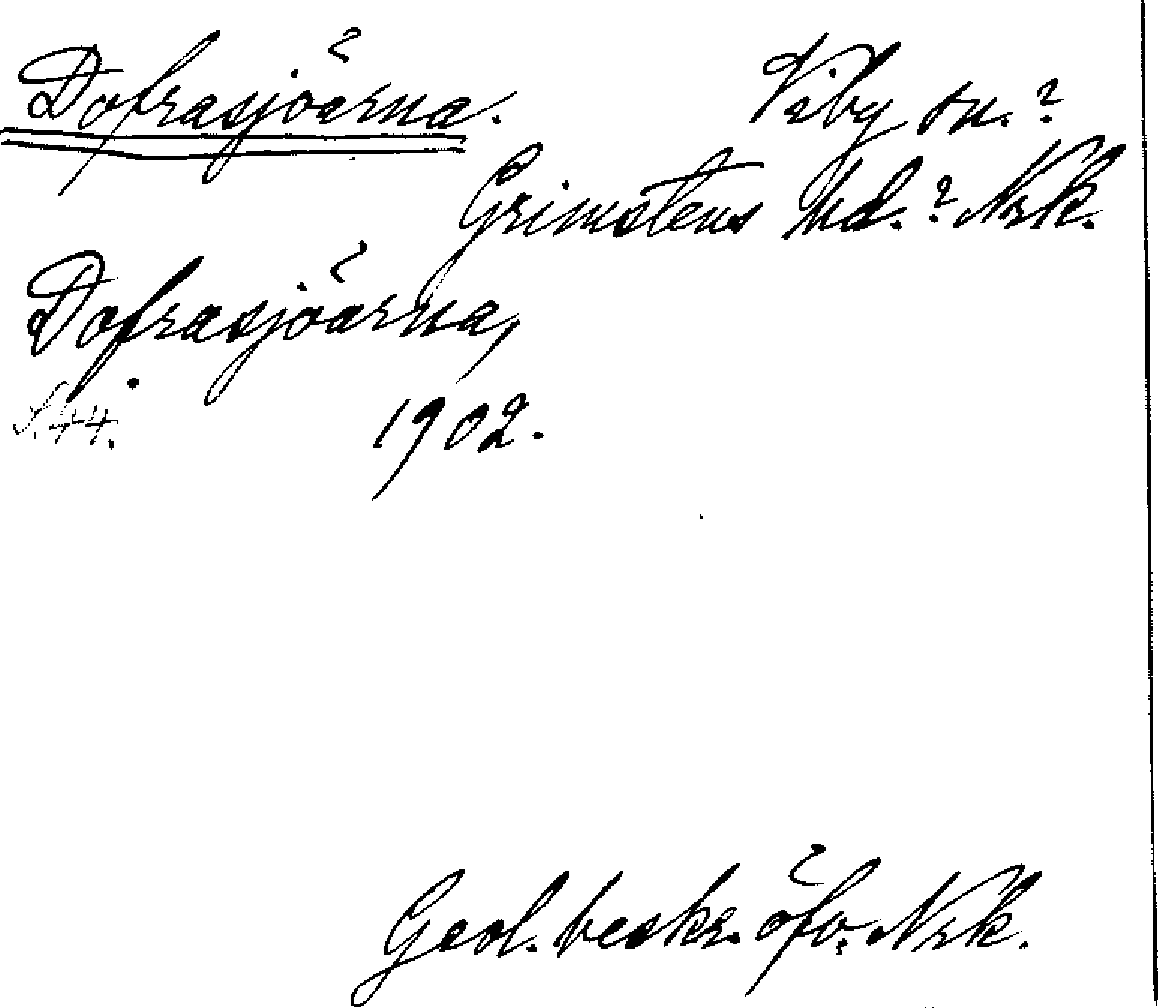 Dofrasjöarna. Viby sn.?
Grimstens hd.? Nrk.
Dofrasjöarna,
S.44. 1902.
Geol. beskr. öfv. Nrk.